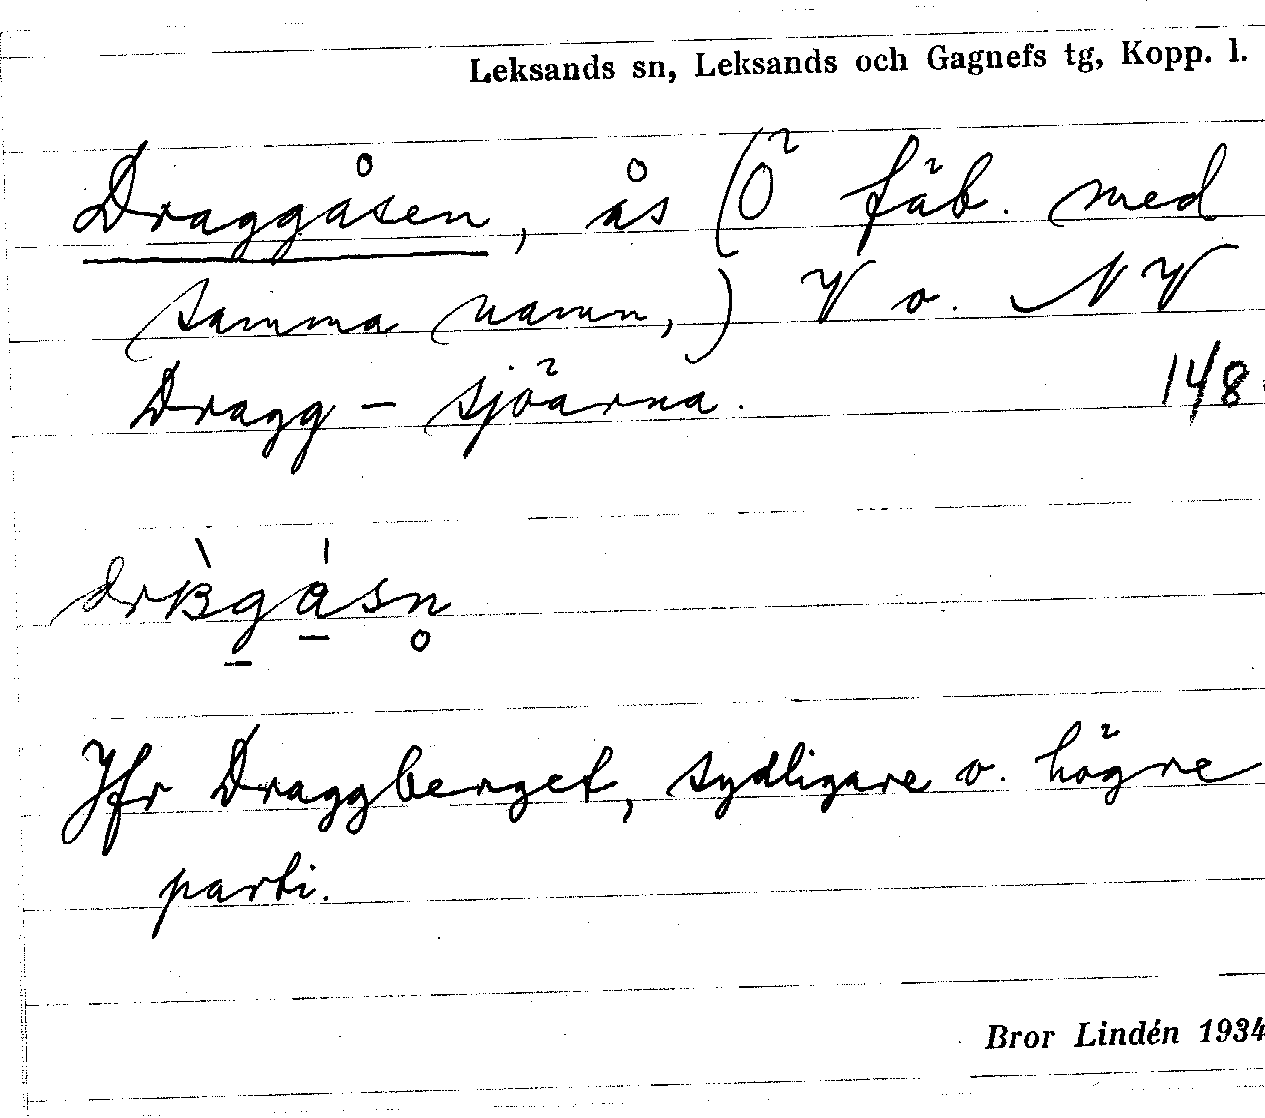 Leksands sn, Leksands och Gagnefs tg, Kopp. l.
Draggåsen, ås (Ö fäb. med
samma namn,) V o. NV
Dragg-sjöarna. 14/8
Jfr Draggberget, sydligare o. högre
parti.
Bror Lindén 1934